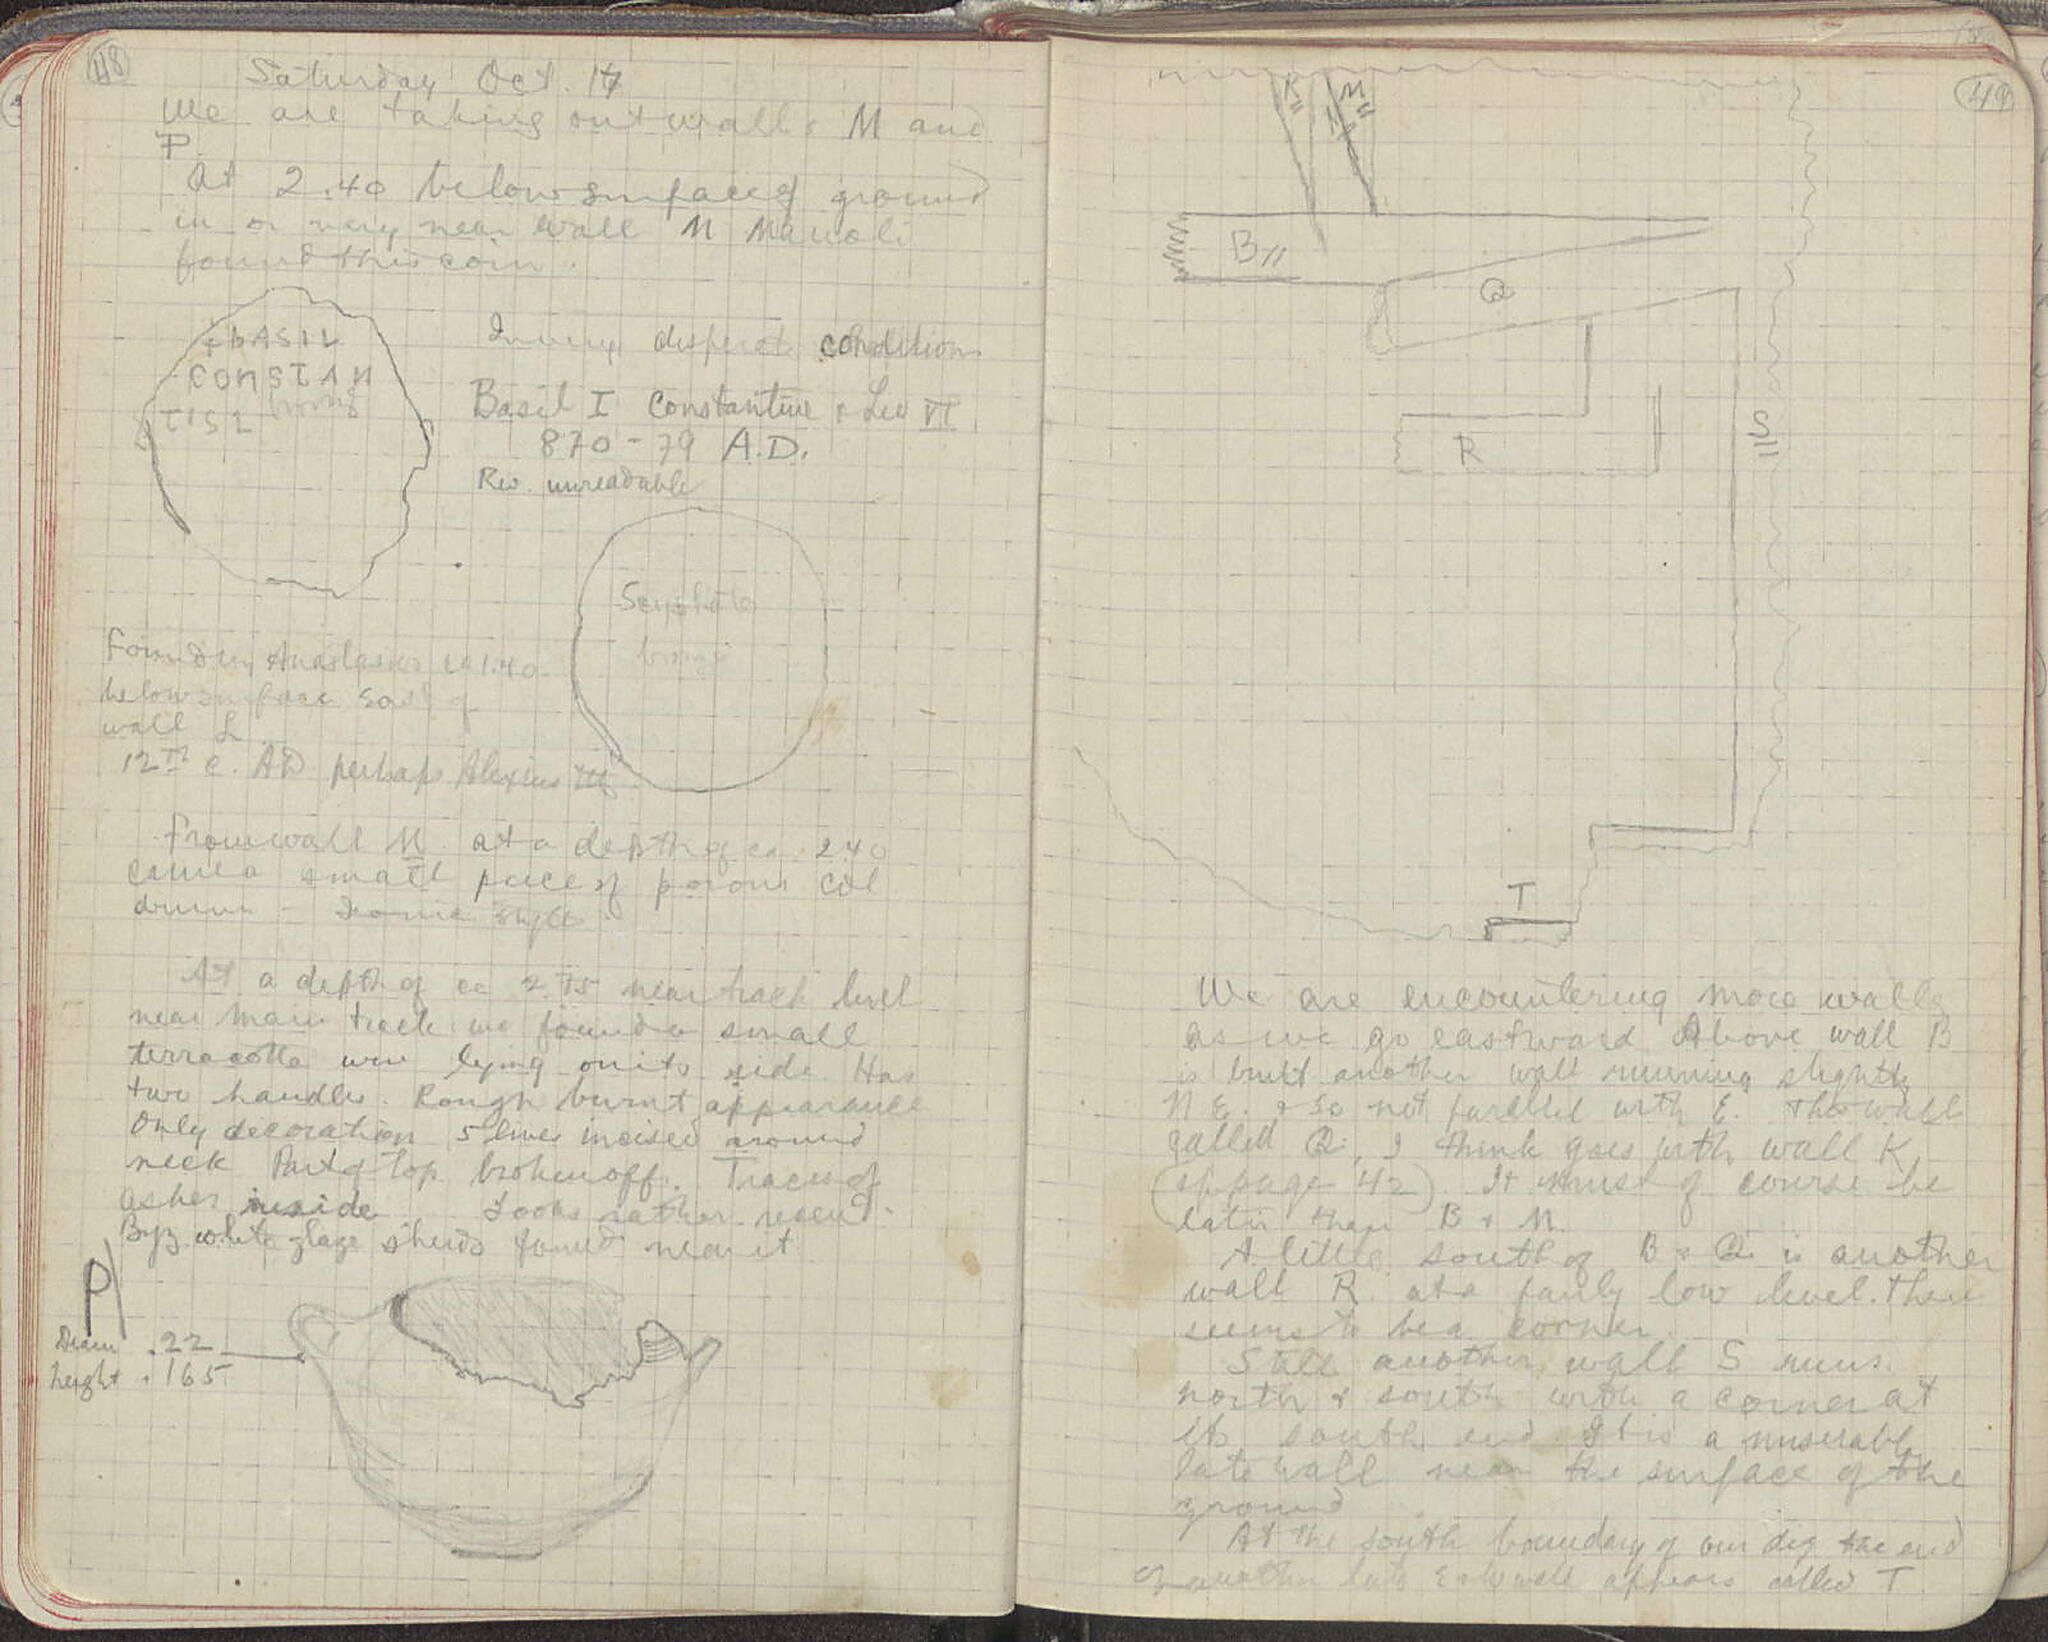 48
Saturday Oct. 17
We are taking out walls M and
P.
At 2.40 below surface of ground
in or very near wall M Manoli
found this coin.
+bASIL
CONSTAN
TIS L
bronze
In very desperate condition
Basil I Constantine & Leo VI
870-79 A.D.
Rev. unreadable
Scyphate
bronze
Found by Anastasios ca 1.40
below surface East of
wall L
12th c. AD perhaps Alexius III
From wall M at a depth of ca. 2.40
came a small piece of poros col.
drum - Ionic style
At a depth of ca 2.75 near track level
near main track we found a small
terracotta urn lying on its side Has
two handles. Rough burnt appearance
Only decoration 5 lines incised around
neck Part of top broken off. Traces of
ashes inside Looks rather recent.
Byz white glaze sherds found near it
P
Diam .22
height .165
49
K
M
B
Q
R
S
T
We are encountering more walls
as we go eastward Above wall B
is built another wall running slightly
N E. & so not parallel with E. This wall
called Q, I think goes with wall K
(cf page 42). It must of course be
later than B & M.
A little south of B & Q is another
wall R at a fairly low level. There
seems to be a corner.
Still another wall S runs
north & south with a corner at
its south end It is a miserable
late wall near the surface of the
ground
At the south boundary of our dig the end
of another late wall appears called T